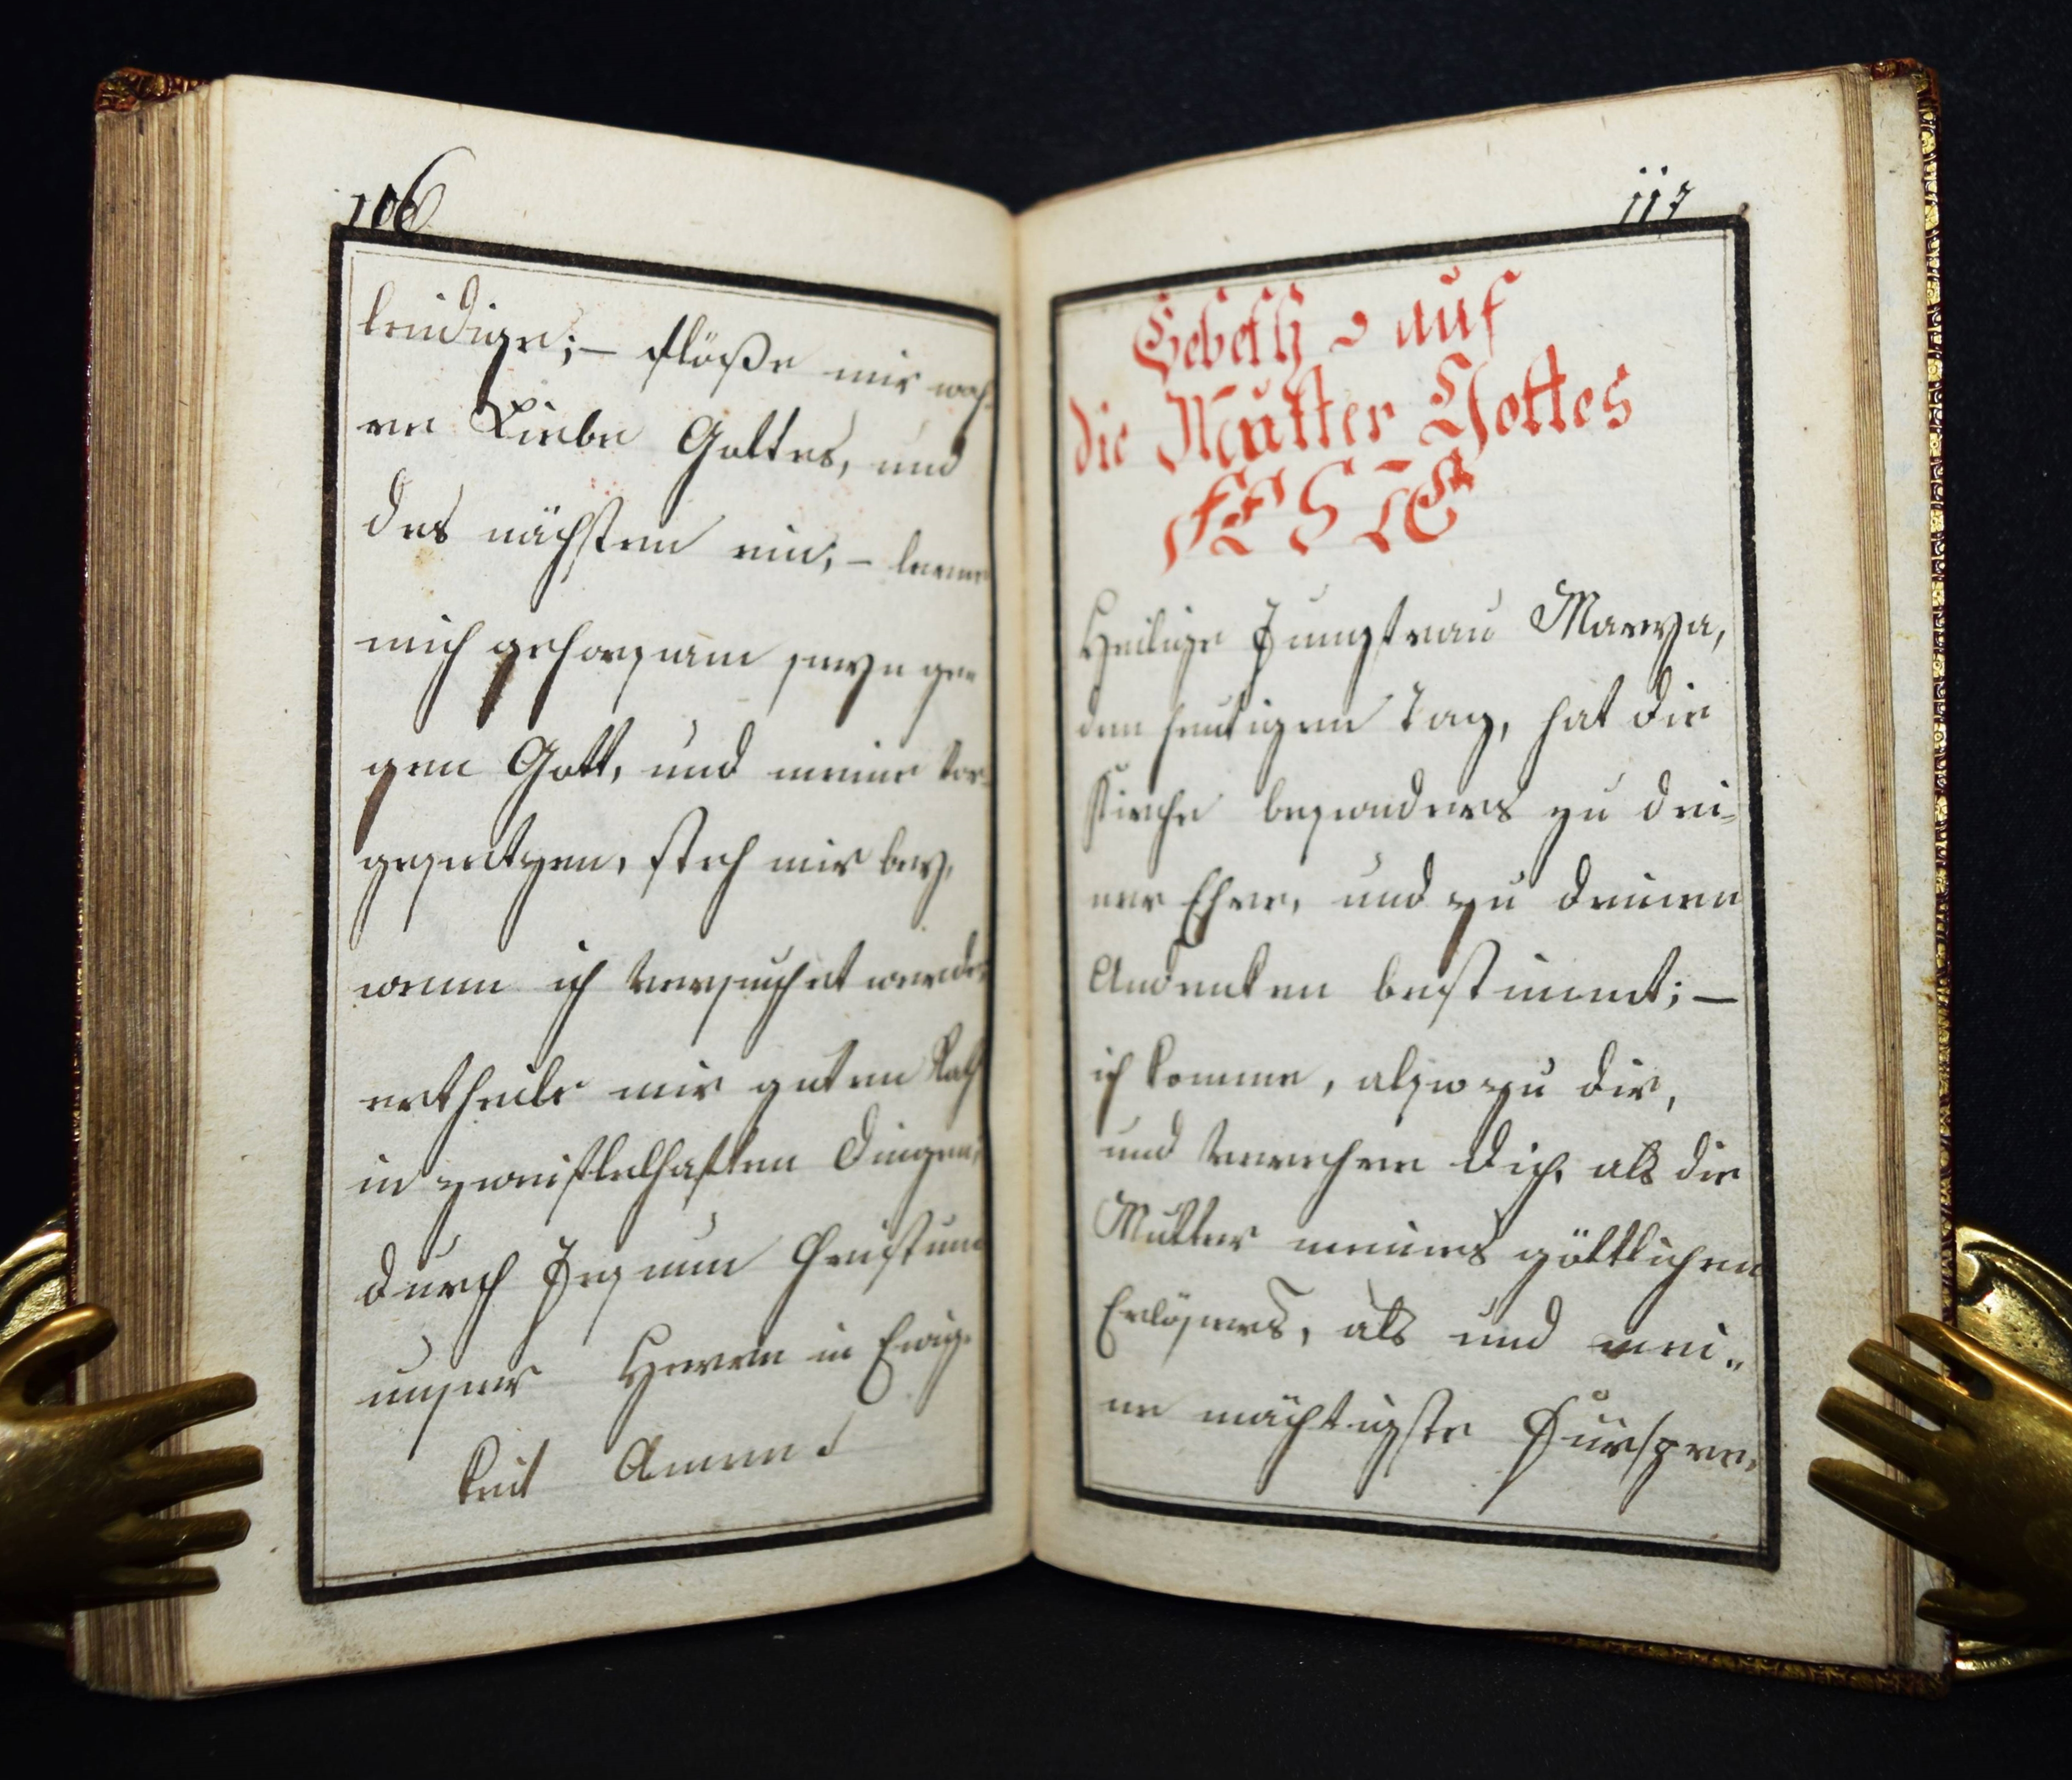 106
leidige; – flöße mir wah-
re Liebe Gottes, und
des nächsten ein; – lerne
mich gehorsam seyn ge
gen Gott, und meine vor-
gesetzen, steh mir bey,
wenn ich versuchet werde,
ertheile mir guten Rath
in zweiflelhaften Dingen,
durch Jesum Christum
unser Herrn in Ewig-
keit Amen
117
Gebeth auf
die Mutter Gottes
FESTE
Heilige Jungfrau Marya,
den heutigen Tag, hat die
Kirche besonders zu dei-
ner Ehre, und zu deinen
Andenken bestimmt; –
ich komme, also zu dir,
und verehre dich, als die
Mutter meines göttlichen
Erlösers, als und mei„
ne mächtigste Fürspre,